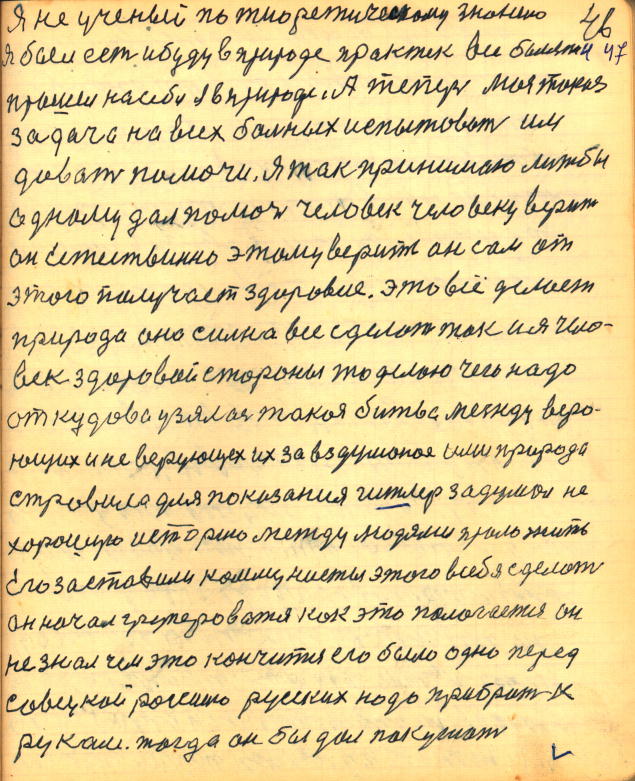 Я не ученый по тиоретическому знанию 46
я был есть и буду в природе практек все болячки 47
прошли на себя я в природе. А теперь моя такая
задача на всех болных испытовать им
довать помочи. Я так принимаю лижбы
одному дал помоч человек человеку верит
он естественно этому верить он сам от
этого получает здоровие. Это всё делает
природа она силна все сделать так и я чело-
век здоровой стороны то делаю чего надо
откудова узялась такая битва между веро-
ющих и не верующех их за вздумоное или природа
стровила для показания гитлер задумал не
хорошую историю между людями проложить
Его заставили коммунисты этого в себя сделать
он начал групероватя как это пологается он
не знал чем это кончится его было одно перед
совецкой россию русских надо прибрать к
рукам. тогда он бы дал покушать